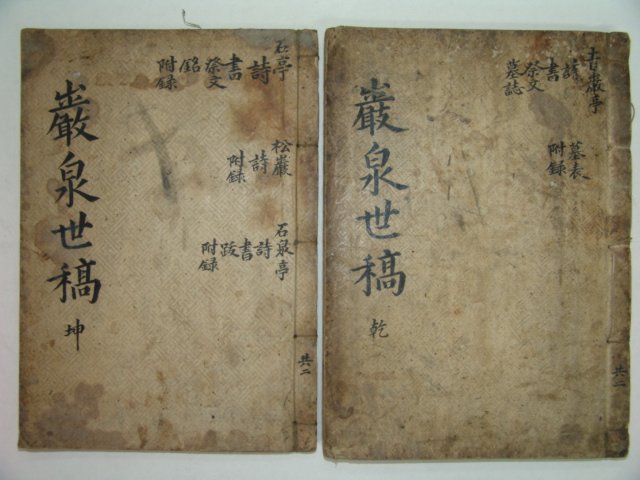 巖泉世稿
乾
吉巖亭
詩
書
祭文
墓誌
墓表
附録
共二
巖泉世稿
坤
石亭
詩
書
祭文
銘
附録
松巖
詩
附録
石泉亭
詩
書
跋
附録
共二